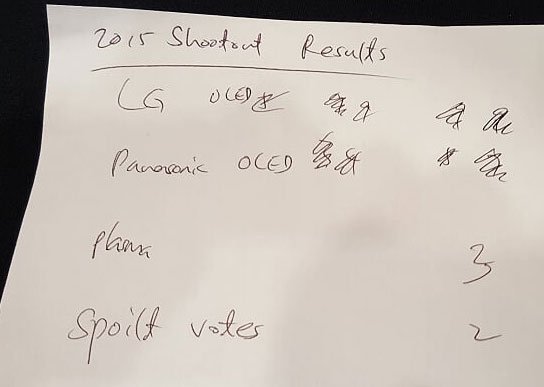 2015 Shootout Results
LG OLED
Panasonic OLED
plasma 3
Spoilt votes 2